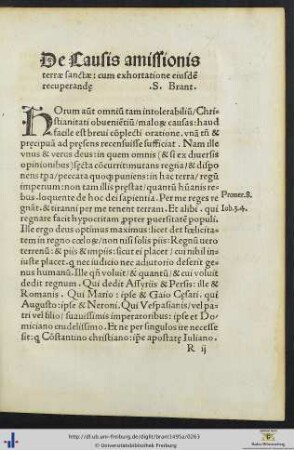 De Causis amissionis
terræ sanctæ: cum exhortatione eiusdē
recuperandę .S. Brant.
HOrum aūt omniū tam intolerabiliū/Chri/
stianitati obueniētiū/maloƶ causas: haud
facile est breui cōplecti oratione. vnā tñ &
pręcipuā ad pręsens recensuisse sufficiat. Nam ille
vnus & verus deus: in quem omnis (& si ex duersis
opinionibus)secta cōcurrit: mutans regna/& dispo
nens tpa/peccata quoqƺ puniens: in hac terra/ regū
imperum: non tam illis pręstat/ quantū hūanis re
bus.loquente de hoc dei sapientia. Per me reges re
gnāt: & tiranni per me tenent terram. Et alibi. qui
regnare facit hypocritam ꝓpter puersitatē populi.
Ille ergo deus optimus maximus: licet det fœlicita
tem in regno cœlo&/non nisi solis piis: Regnū vero
terrenū: & piis & impiis: sicut ei placet/ cui nihil in
iuste placet. qƺ nec iudicio nec adiutorio deserit ge
nus humanū. Ille qñ voluit/& quantū/& cui voluit
dedit regnum. Qui dedit Assyriis & Persis: ille &
Romanis. Qui Mario: ipse & Gaio Cęsari. qui
Augusto: ipse & Neroni. Qui Vespasianis/vel pa
tri vel filio: suauissimis imperatoribus: ipse et Do/
miciano crudelissimo. Et ne per singulos ire necesse
sit: qƺ Cōstantino christiano: ipse apostatę Iuliano.
Prouer.8.
Iob.34.
R ij
http://dl.ub.uni-freiburg.de/diglit/brant1495a/0263
© Universitätsbibliothek Freiburg